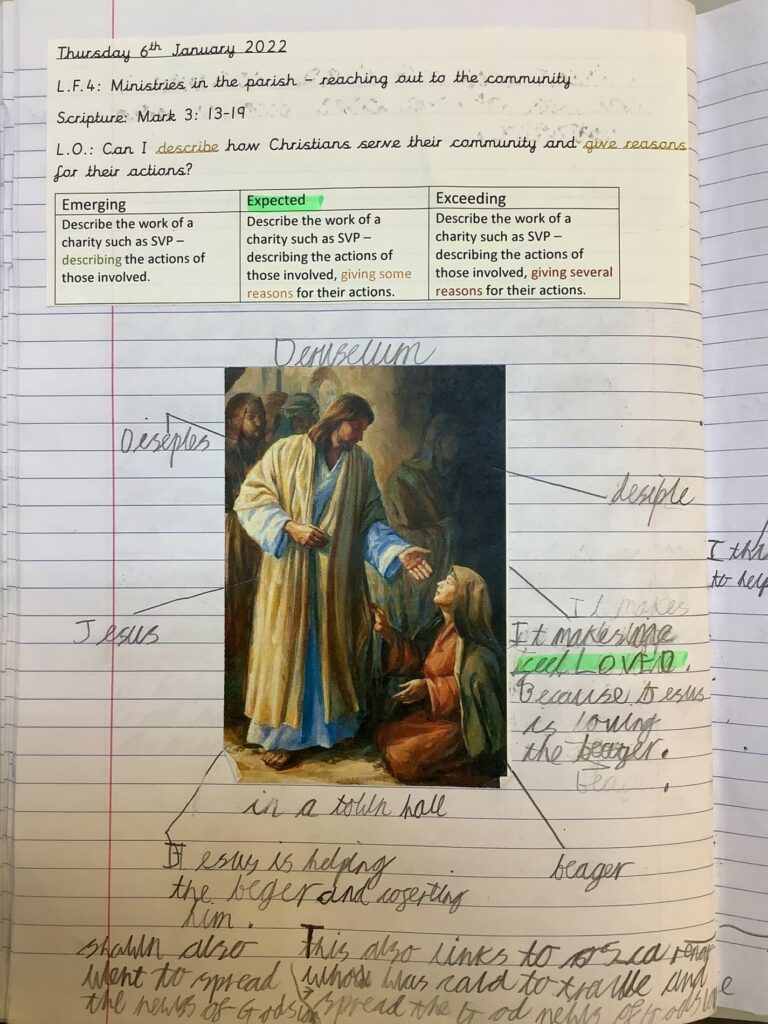 Thursday 6th January 2022
L.F.4: Ministries in the parish – reaching out to the community
Scripture: Mark 3: 13-19
L.O.: Can I describe how Christians serve their community and give reasons
for their actions?
Emerging
Describe the work of a
charity such as SVP –
describing the actions of
those involved.
Expected
Describe the work of a
charity such as SVP –
describing the actions of
those involved, giving some
reasons for their actions.
Exceeding
Describe the work of a
charity such as SVP –
describing the actions of
those involved, giving several
reasons for their actions.
Deruselum
Diseples
desiple
Jesus
It makes
It makes me
feel LOVED.
Because Jesus
is loving
the beager.
in a town hall
beager
Jesus is helping
the beger and
him.
also
went to spread
the news of Gods
This also links to
was to and
spread the God news of Gods
I thi
to help